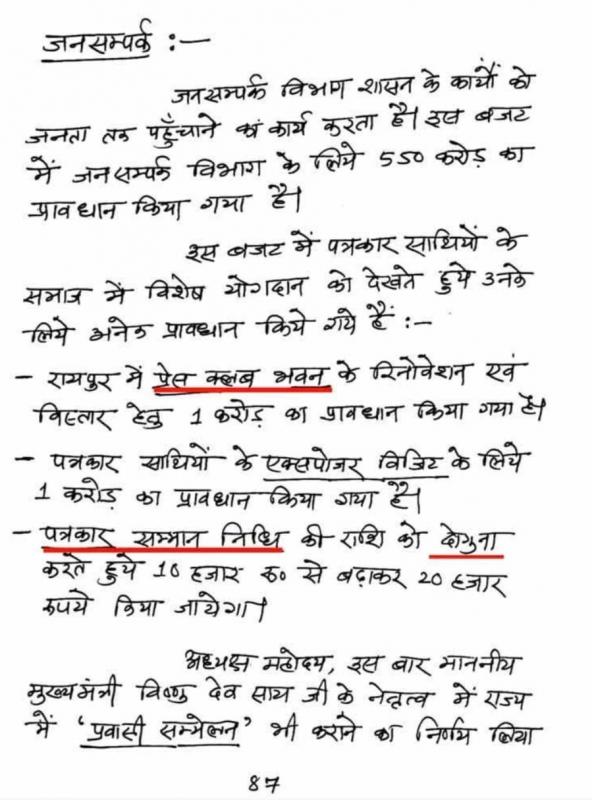 जनसम्पर्क :-
जनसम्पर्क विभाग शासन के कार्यों को
जनता तक पहुँचाने का कार्य करता है। इस बजट
में जनसम्पर्क विभाग के लिये 550 करोड़ का
प्रावधान किया गया है।
इस बजट में पत्रकार साथियों के
समाज में विशेष योगदान को देखते हुये उनके
लिये अनेक प्रावधान किये गये हैं :-
- रायपुर में प्रेस क्लब भवन के रिनोवेशन एवं
विस्तार हेतु 1 करोड़ का प्रावधान किया गया है।
- पत्रकार साथियों के एक्सपोजर विजिट के लिये
1 करोड़ का प्रावधान किया गया है।
- पत्रकार सम्मान निधि की राशि को दोगुना
करते हुये 10 हजार रू० से बढ़ाकर 20 हजार
रुपये किया जायेगा।
अध्यक्ष महोदय, इस बार माननीय
मुख्यमंत्री विष्णु देव साय जी के नेतृत्व में राज्य
में 'प्रवासी सम्मेलन' भी कराने का निर्णय लिया
87